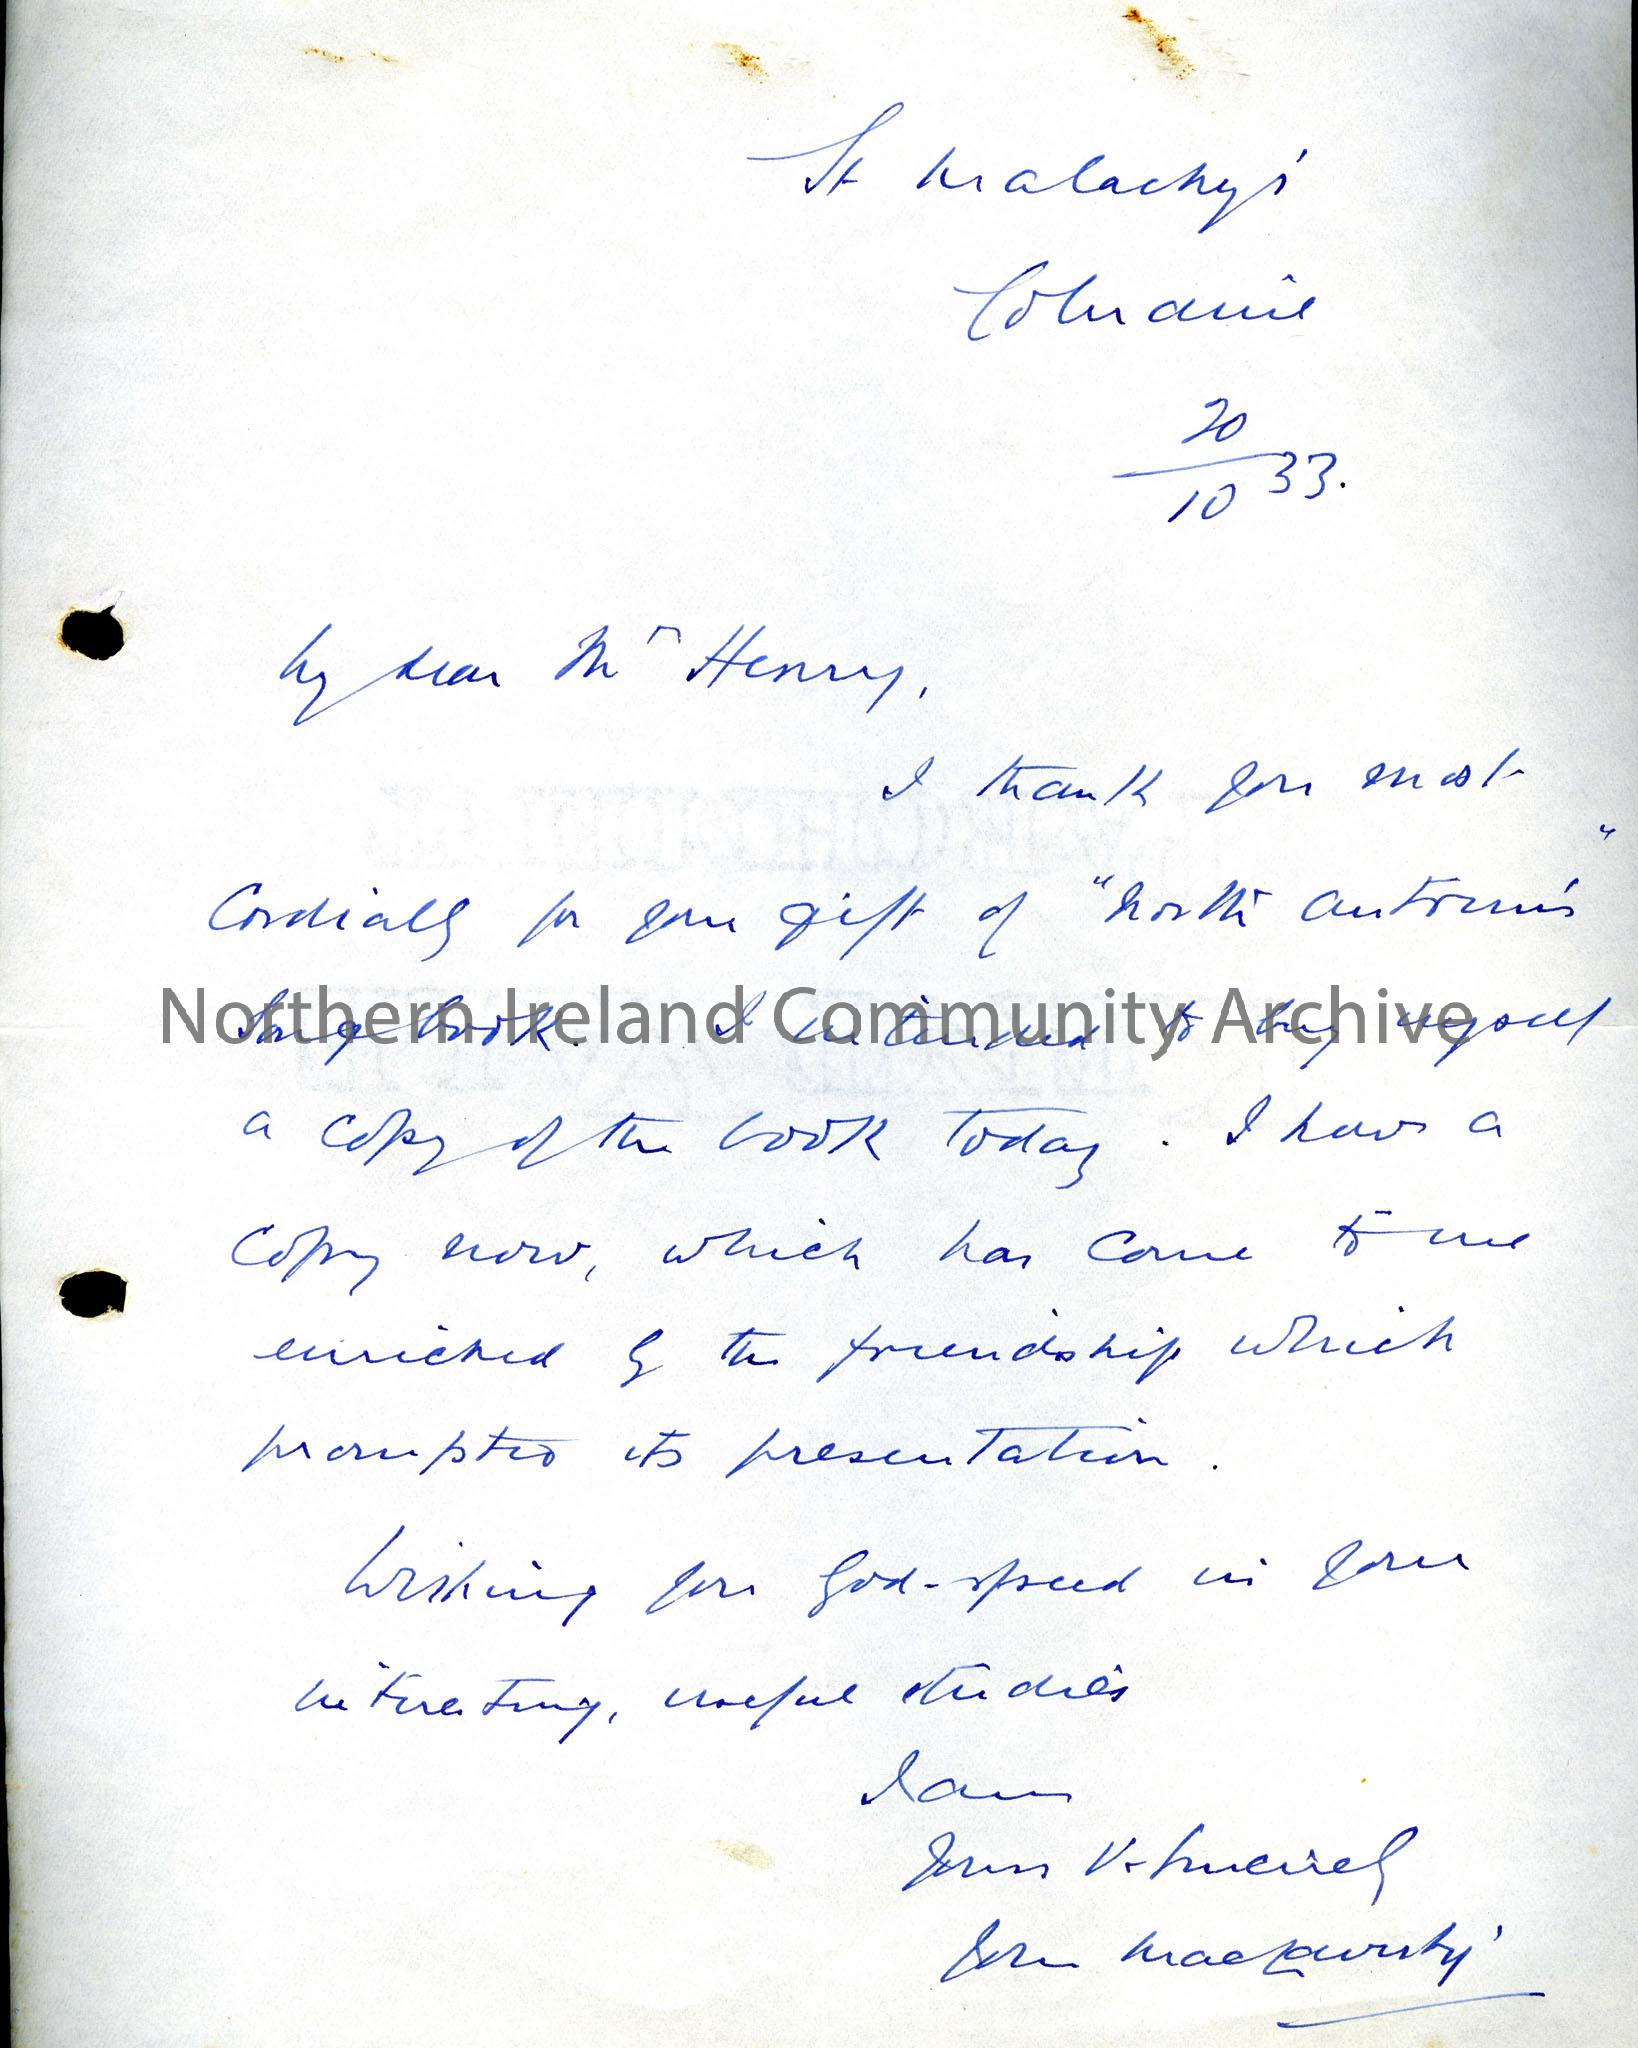 St Malachy's
Coleraine
20/10 33.
My dear Mr Henry,
I thank you most
Cordially for your gift of "North Antrim's"
Song book. I intended to buy myself
a copy of the book today. I have a
Copy now, which has come to me
enriched by the friendship which
prompted its presentation.
Wishing you God-speed in your
interesting, useful studies
I am
Yours V. Sincerely
John
Northern Ireland Community Archive